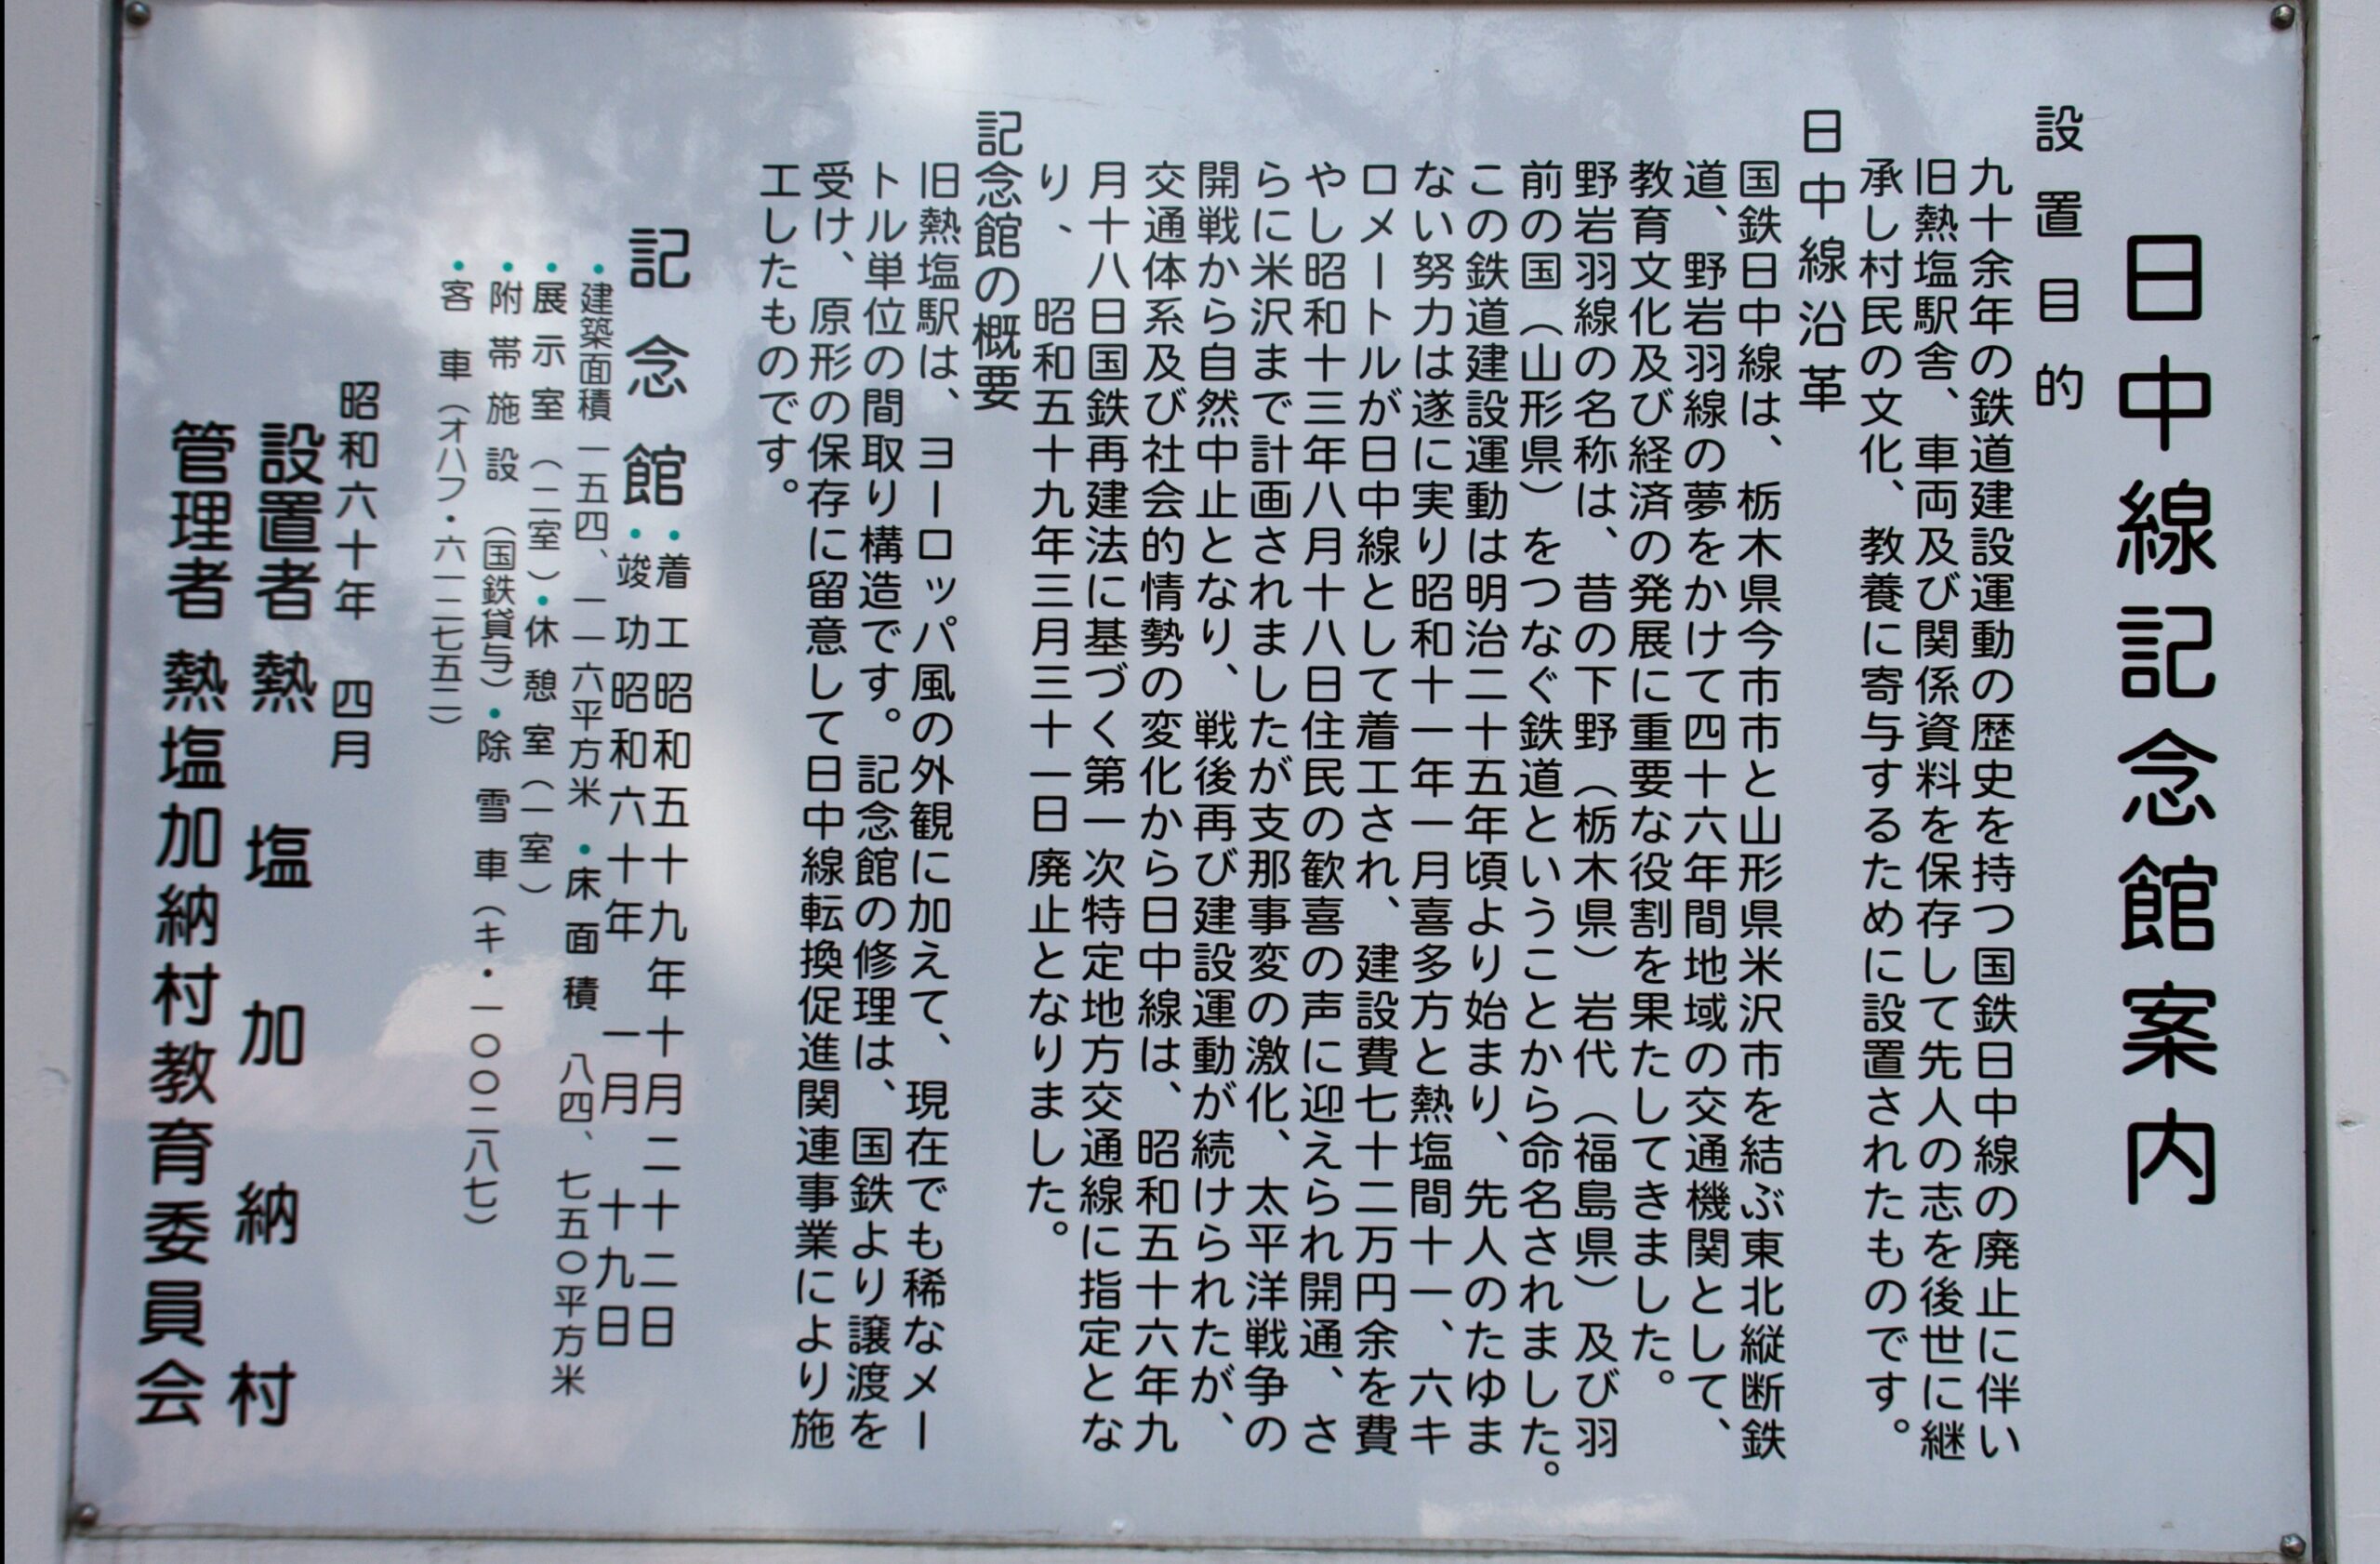 日中線記念館案内
設置目的
九十余年の鉄道建設運動の歴史を持つ国鉄日中線の廃止に伴い
旧熱塩駅舎、車両及び関係資料を保存して先人の志を後世に継
承し村民の文化、教養に寄与するために設置されたものです。
日中線沿革
国鉄日中線は、栃木県今市市と山形県米沢市を結ぶ東北縦断鉄
道、野岩羽線の夢をかけて四十六年間地域の交通機関として、
教育文化及び経済の発展に重要な役割を果たしてきました。
野岩羽線の名称は、昔の下野（栃木県）岩代（福島県）及び羽
前の国（山形県）をつなぐ鉄道ということから命名されました。
この鉄道建設運動は明治二十五年頃より始まり、先人のたゆま
ない努力は遂に実り昭和十一年一月喜多方と熱塩間十一、六キ
ロメートルが日中線として着工され、建設費七十二万円余を費
やし昭和十三年八月十八日住民の歓喜の声に迎えられ開通、さ
らに米沢まで計画されましたが支那事変の激化、太平洋戦争の
開戦から自然中止となり、戦後再び建設運動が続けられたが、
交通体系及び社会的情勢の変化から日中線は、昭和五十六年九
月十八日国鉄再建法に基づく第一次特定地方交通線に指定とな
り、昭和五十九年三月三十一日廃止となりました。
記念館の概要
旧熱塩駅は、ヨーロッパ風の外観に加えて、現在でも稀なメー
トル単位の間取り構造です。記念館の修理は、国鉄より譲渡を
受け、原形の保存に留意して日中線転換促進関連事業により施
工したものです。
記念館
・着工 昭和五十九年十月二十二日
・竣功 昭和六十年 一月 十九日
・建築面積 一五四、一一六平方米 ・床面積 八四、七五〇平方米
・展示室（二室）・休憩室（一室）
・附帯施設（国鉄貸与）・除雪車（キ・一〇〇二八七）
・客車（オハフ・六一二七五二）
昭和六十年 四月
設置者 熱塩加納村
管理者 熱塩加納村教育委員会